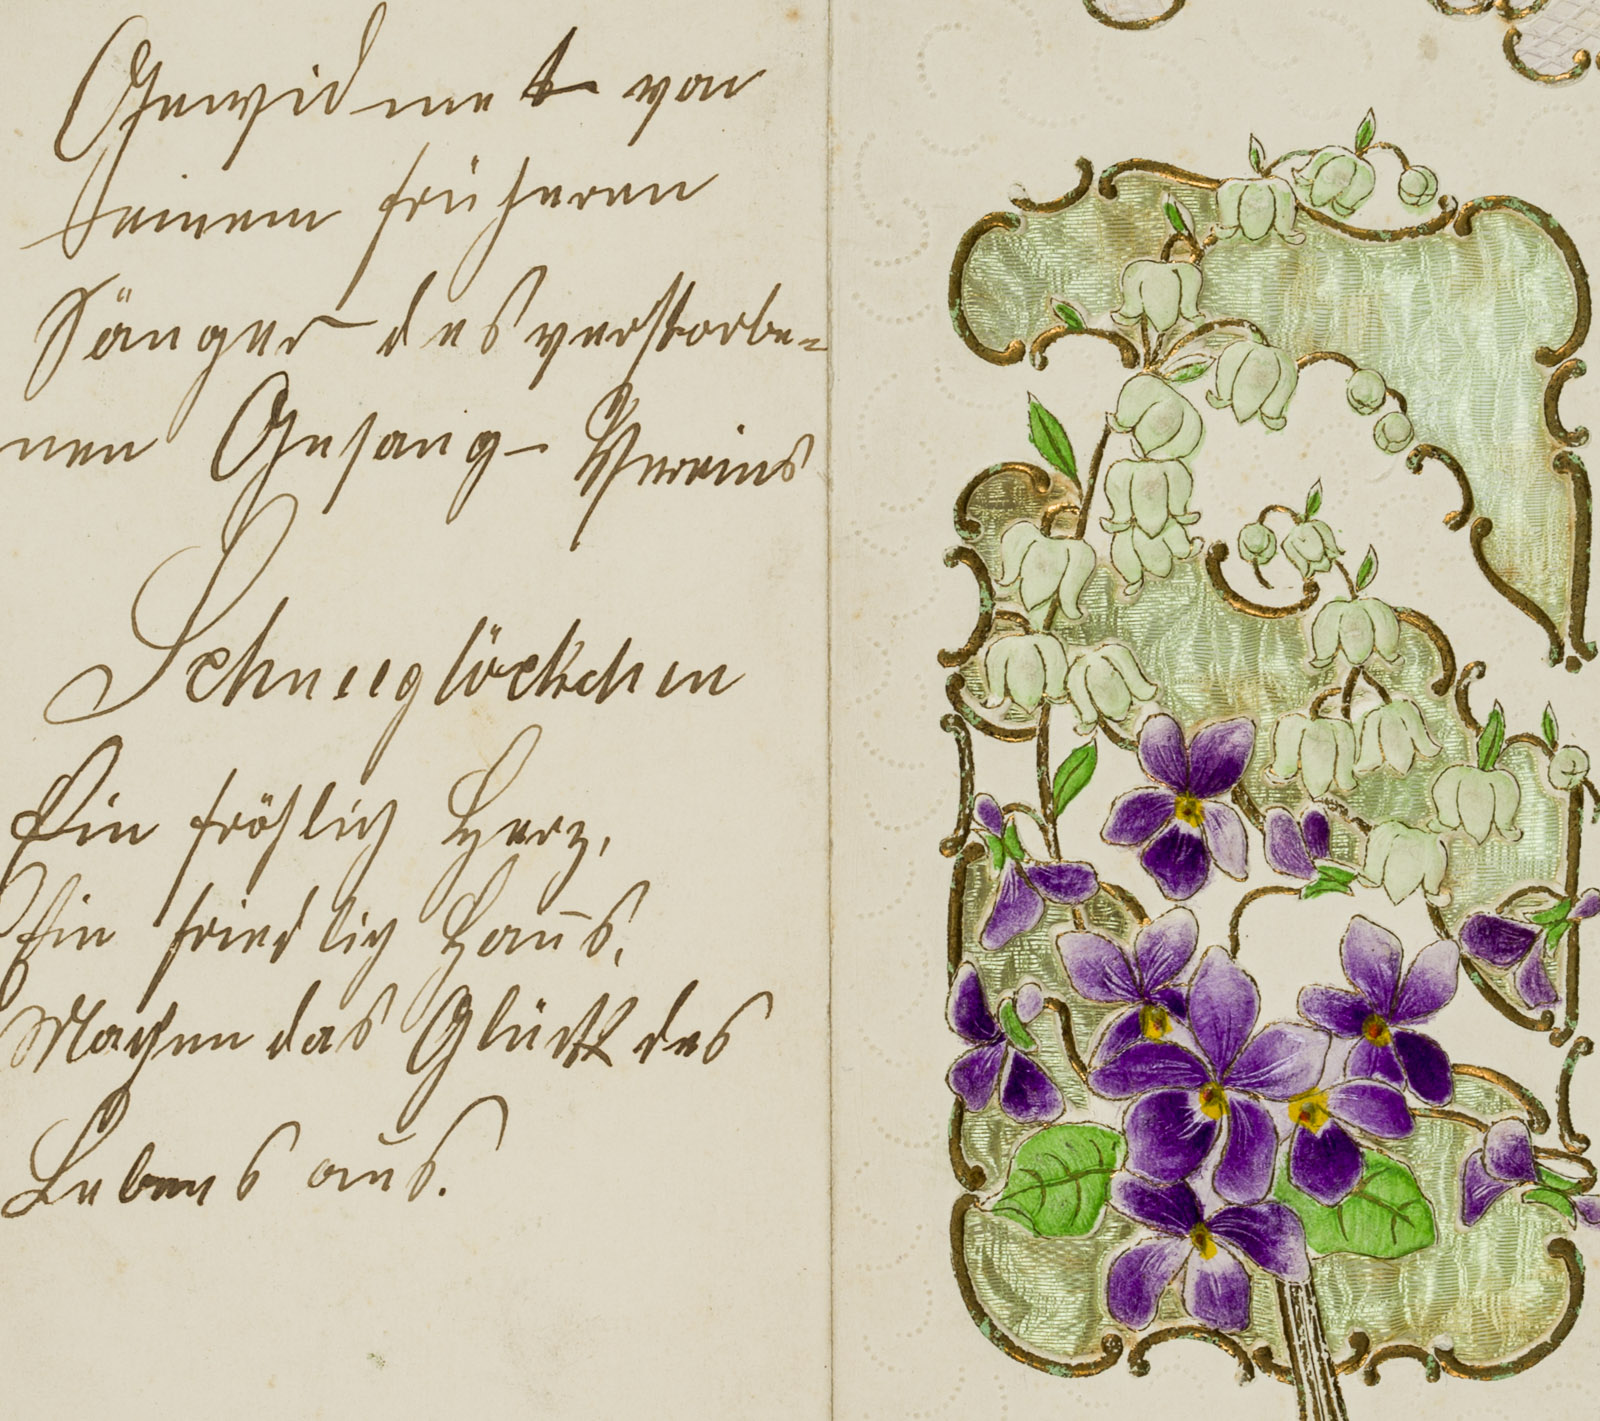 Gewidmet von
seinem früheren
Sänger des verstorbe=
nen Gesang-Vereins
Schneeglöckchen
Ein fröhlich Herz,
Ein friedlich Haus,
Machen das Glück des
Lebens aus.